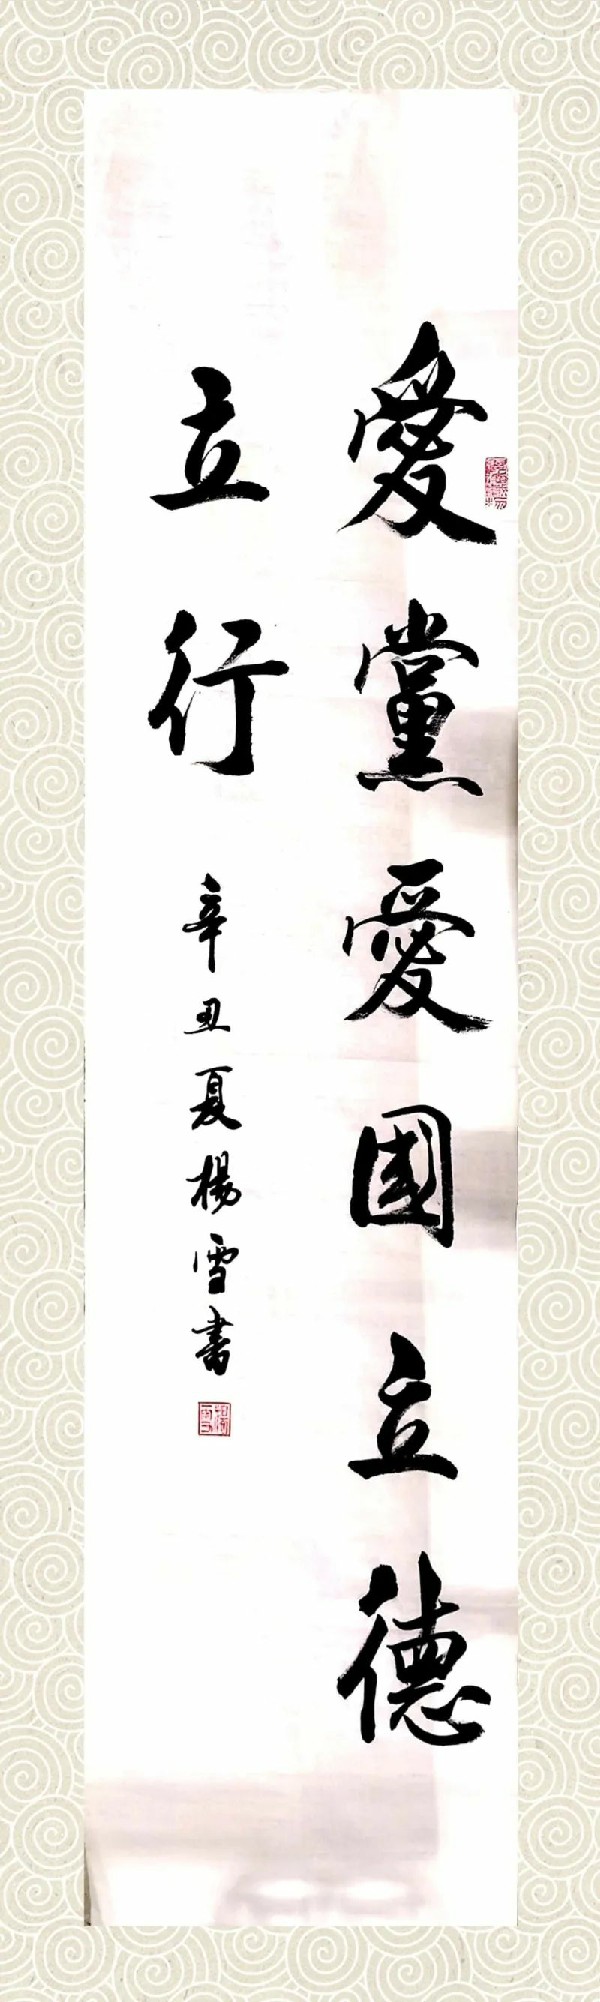 愛黨愛國立德
立行
辛丑夏楊雪書